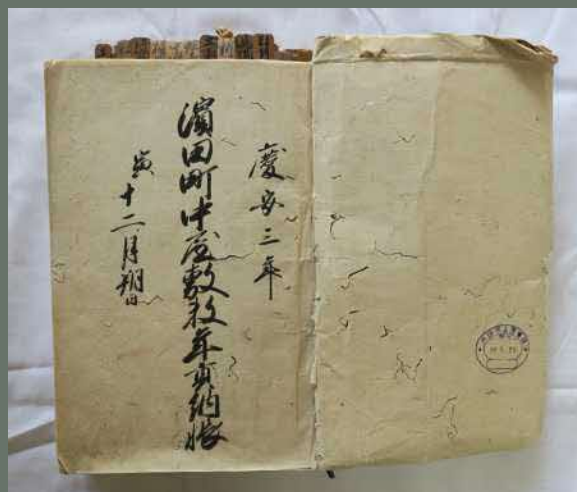 慶安三年
濱田町中屋敷年貢納帳
寅十二月朔日